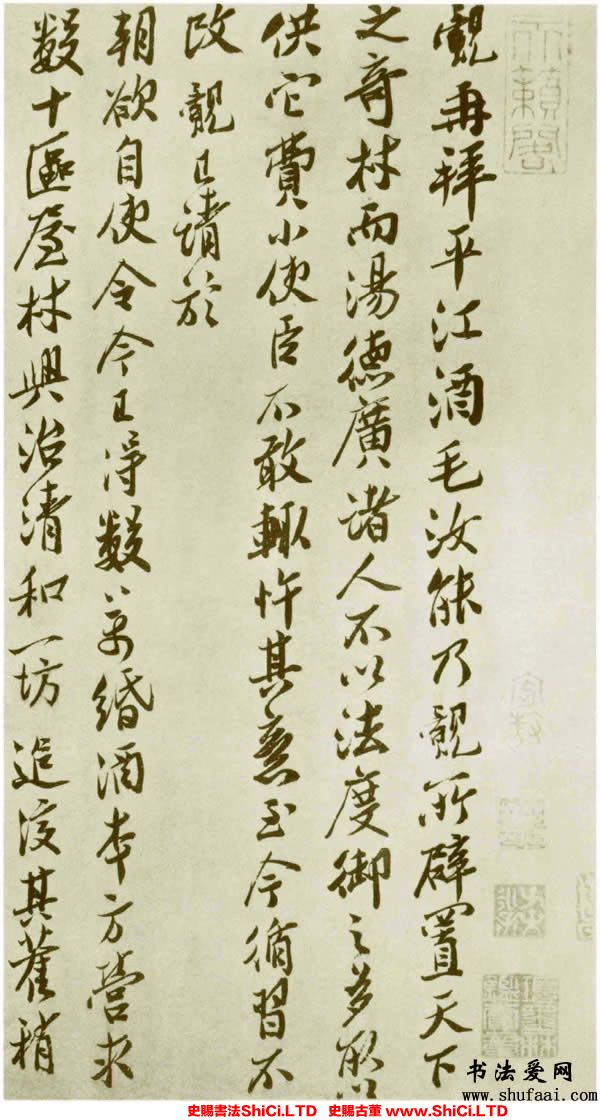 覿再拜平江酒毛汝能乃覿所辟置天下
之奇材而湯德廣諸人不以法度御之多取以
供它費小使臣不敢輒忤其意至今循習不
改覿已請於
朝欲自使令今已得數万緡酒本方營求
數十區屋材興治清和一坊追復其舊稍
天籟閣
书法爱网
www.shufaai.com
史賜書法ShiCi.LTD 史賜古董 www.ShiCi.LTD